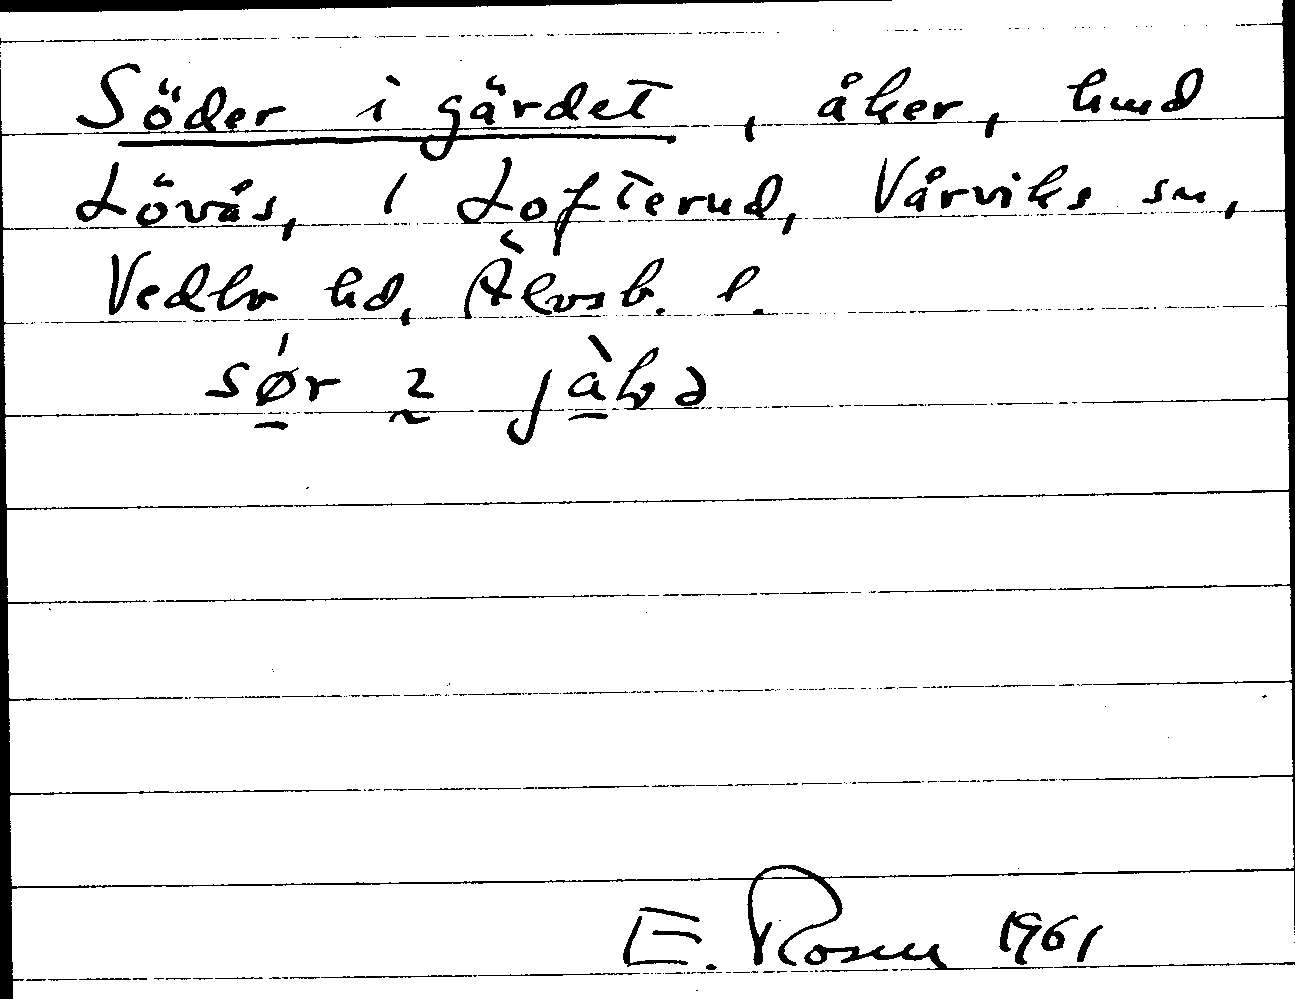 Söder i gärdet, åker, hmd
Lövås, 1 Lofterud, Vårviks sn,
Vedbo hd, Älvsb. l.
sør 2 jàḷə
E. Rosen 1961